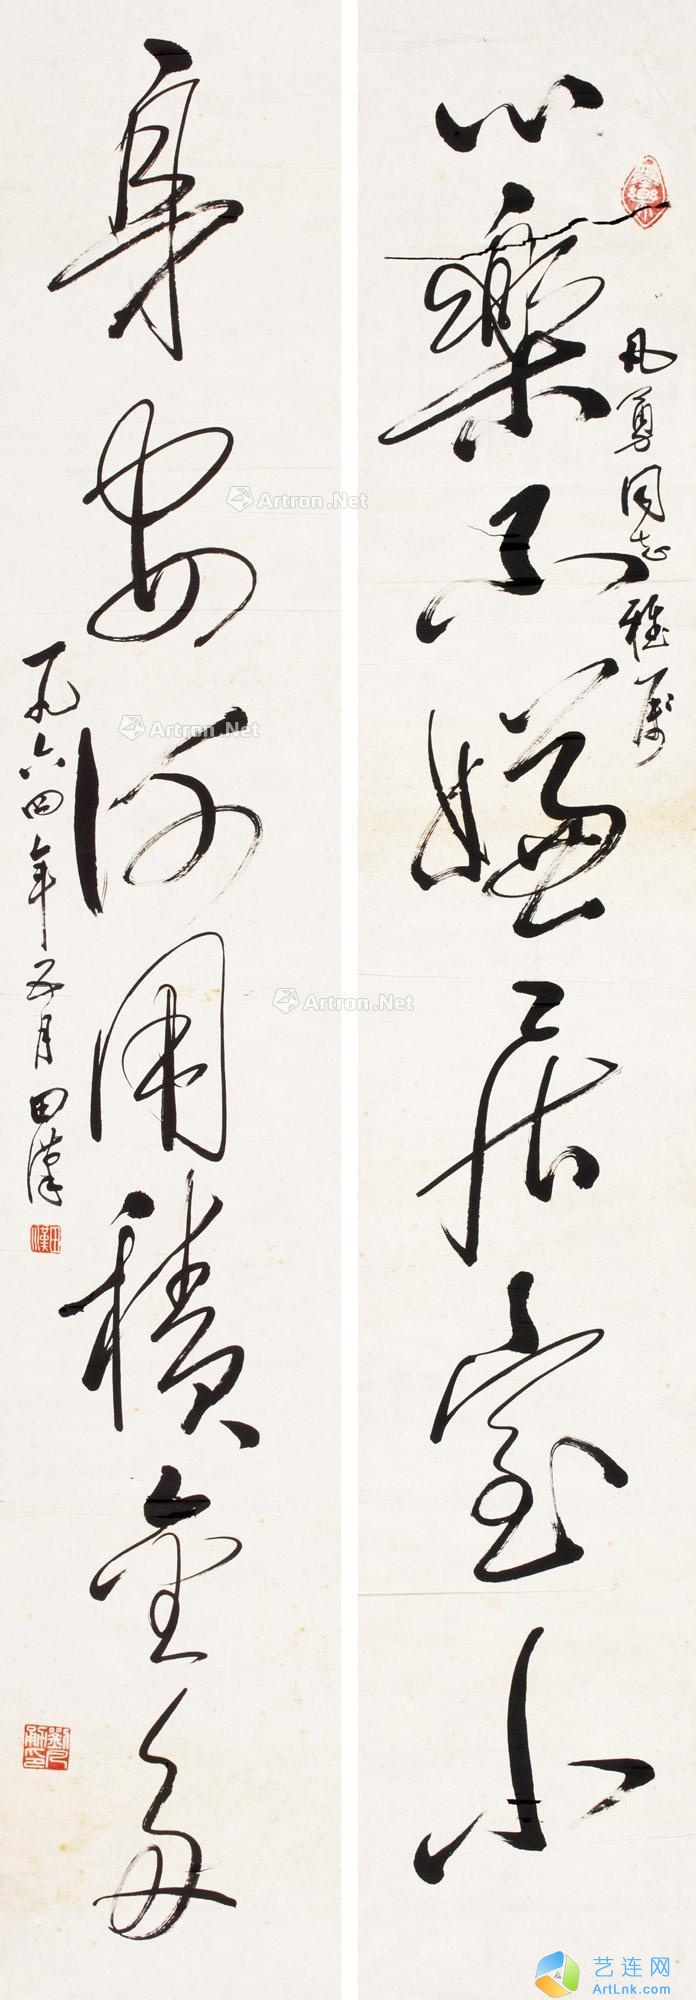 心樂不嫌居室小
凡勇同志雅属
身安何用積金多
一九六四年五月田漢
田漢
Artron.Net
Artron.Net
Artron.Net
艺连网
ArtLnk.com